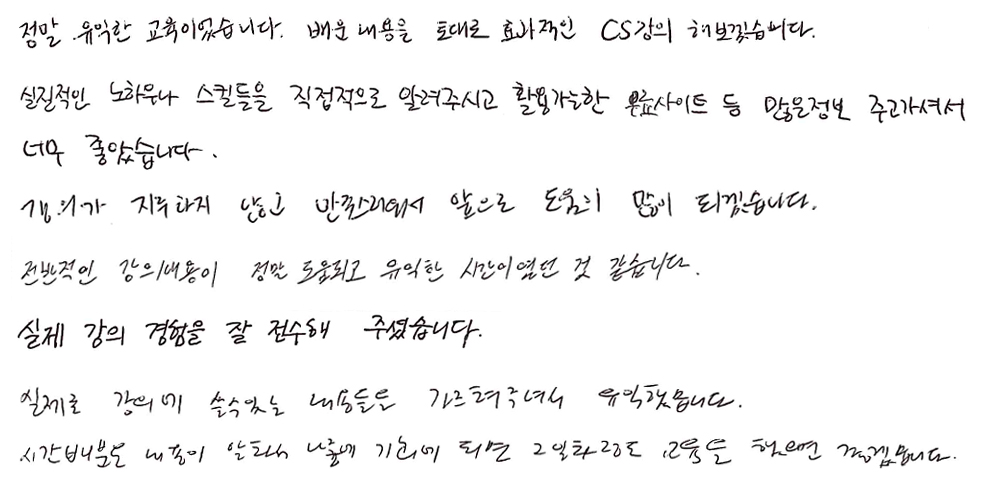 정말 유익한 교육이었습니다. 배운 내용을 토대로 효과적인 CS강의 해보겠습니다.
실질적인 노하우나 스킬들을 직접적으로 알려주시고 활용가능한 무료사이트 등 많은정보 주고가셔서
너무 좋았습니다.
강의가 지루하지 않고 앞으로 도움이 많이 되겠습니다.
전반적인 강의내용이 정말 도움되고 유익한 시간이였던 것 같습니다.
실제 강의 경험을 잘 전수해 주셨습니다.
실제로 강의에 쓸수있는 내용들을 가르쳐주셔서 유익했습니다.
시간배분도 내용이 알차서 나중에 기회에 되면 2일차로도 교육을 했으면 좋겠습니다.